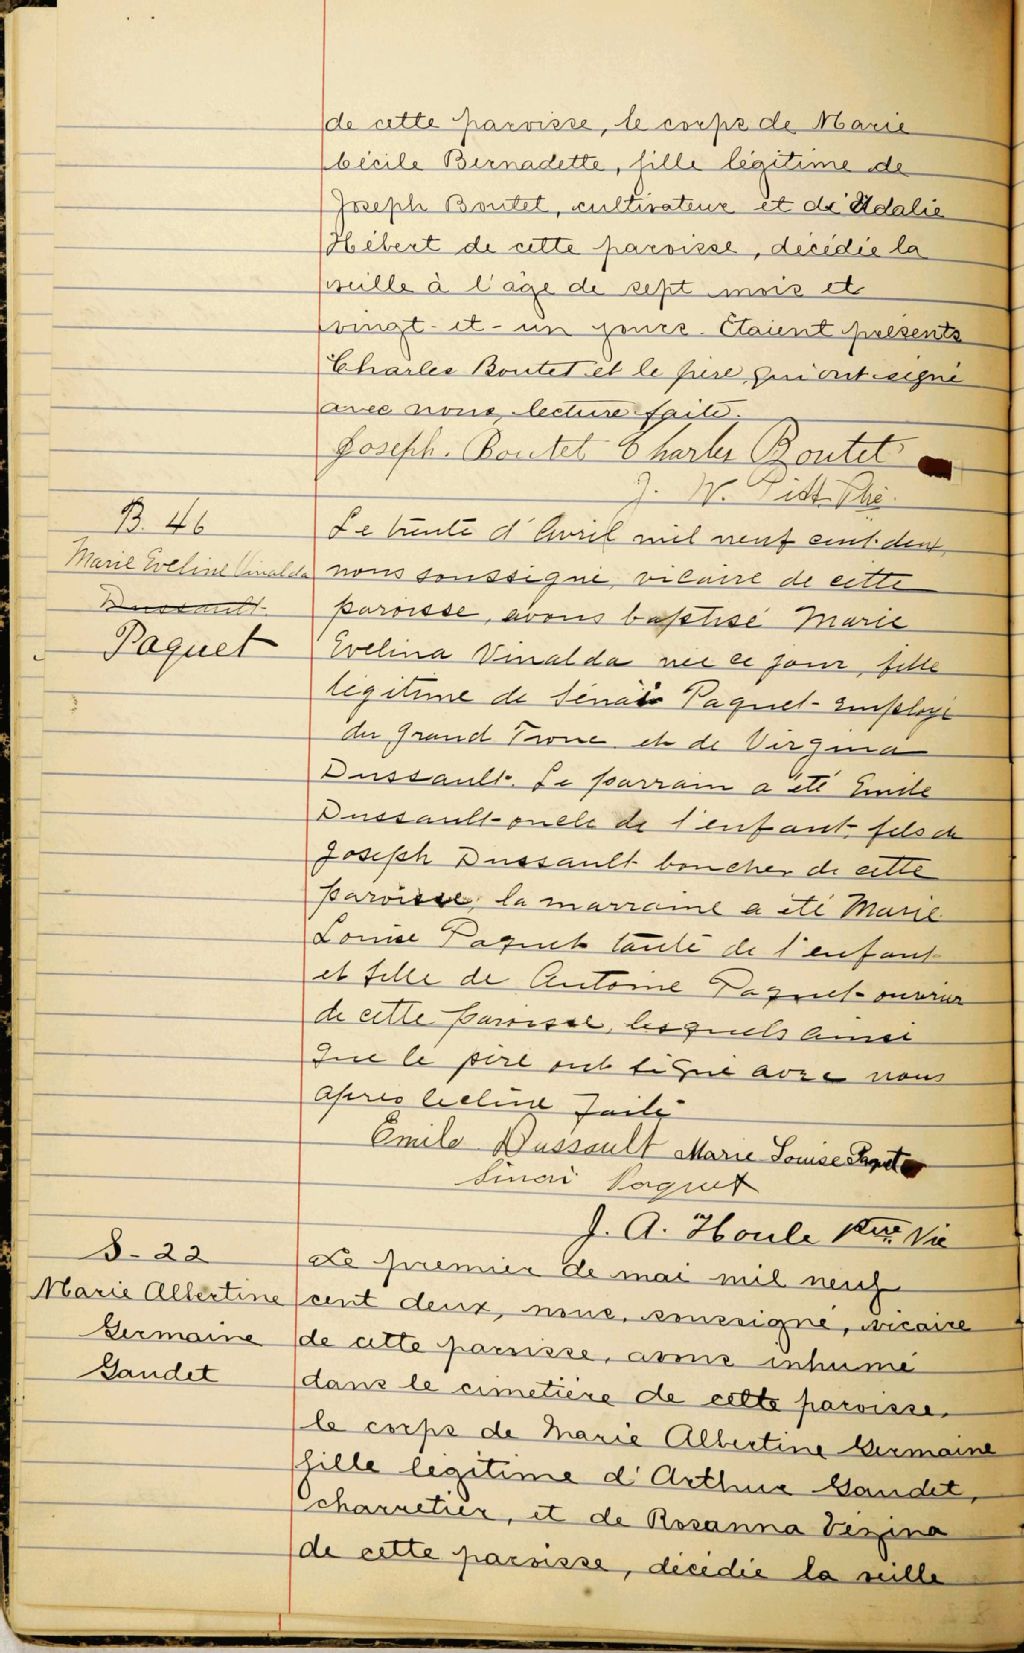 de cette paroisse, le corps de Marie
Cécile Bernadette, fille légitime de
Joseph Boutet, cultivateur et de Udalie
Hébert de cette paroisse, décédée la
veille à l'âge de sept mois et
vingt-et-un jours. Étaient présents
Charles Boutet et le père qui ont signé
avec nous, lecture faite.
Joseph. Boutet Charles Boutet
J. W.
B. 46
Marie Eveline Vinalda
Dussault
Paquet
Le trente d'Avril mil neuf cent-deux,
nous soussigné, vicaire de cette
paroisse, avons baptisé Marie
Evelina Vinalda née ce jour, fille
légitime de Sénaï Paquet employé
du Grand Tronc et de Virgina
Dussault. Le parrain a été Emile
Dussault oncle de l'enfant, fils de
Joseph Dussault boucher de cette
paroisse; la marraine a été Marie
Louise Paquet tante de l'enfant
et fille de Antoine Paquet ouvrier
de cette paroisse, lesquels ainsi
que le père ont signé avec nous
après lecture faite
Emile Dussault Marie Louise Paquet
Sinaï Paquet
J. A. Houle Ptre Vic
S-22
Marie Albertine
Germaine
Gaudet
Le premier de mai mil neuf
cent deux, nous, soussigné, vicaire
de cette paroisse, avons inhumé
dans le cimetière de cette paroisse,
le corps de Marie Albertine Germaine
fille légitime d'Arthur Gaudet,
charretier, et de Rosanna Vézina
de cette paroisse, décédée la veille